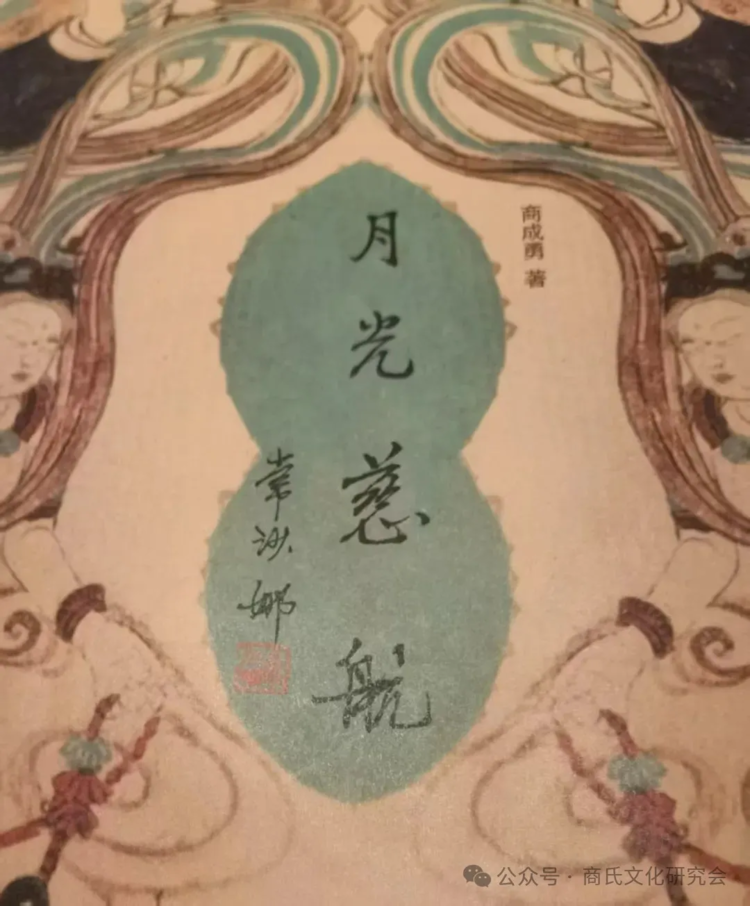 商成勇 著
月光慈航
常沙娜
公众号·商氏文化研究会